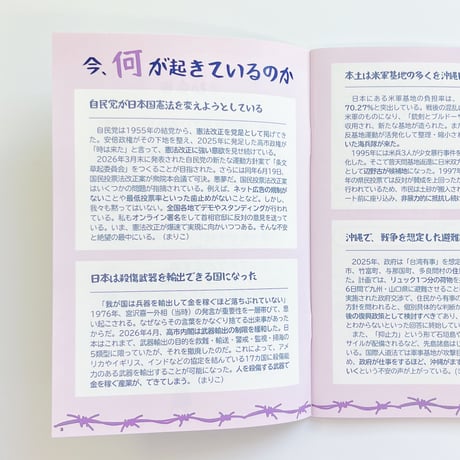 今、何が起きているのか
自民党が日本国憲法を変えようとしている
自民党は1955年の結党から、憲法改正を党是として掲げてき
た。安倍政権がその下地を整え、2025年に発足した高市政権が
「時は来た」と言って、憲法改正に強い意欲を見せ続けている。
2026年3月末に発表された自民党の新たな運動方針案で「条文
草起委員会」をつくることが目指された。さらには同年6月19日、
国民投票法改正案が衆院本会議で可決。悪夢だ。国民投票法改正案
はいくつかの問題が指摘されている。例えば、ネット広告の規制が
ないことや最低投票率といった歯止めがないことなど。しかし、
我々も黙ってはいない。全国各地でデモやスタンディングが行われ
ている。私もオンライン署名をして首相官邸に反対の意見を送って
いる。いま、憲法改正が爆速で実現に向かいつつある。そんな不安
と絶望の最中にいる。（まりこ）
日本は殺傷武器を輸出できる国になった
「我が国は兵器を輸出して金を稼ぐほど落ちぶれていない」
1976年、宮沢喜一外相（当時）の発言が重要性を一層帯びて、思
い起こされる。なぜならその言葉をかなぐり捨てる出来事があった
からだ。2026年4月、高市内閣は武器輸出の制限を緩和した。日
本はこれまで、武器輸出の目的を救難・輸送・警戒・監視・掃海の
5類型に限っていたが、それを撤廃したのだ。これによって、アメ
リカやイギリス、インドなどの協定を結んでいる17カ国に殺傷能
力のある武器を輸出することが可能になった。人を殺傷する武器で
金を稼ぐ産業が、できてしまう。（まりこ）
本土は米軍基地の多くを沖縄
日本にある米軍基地の負担率は、
70.27％と突出している。戦後の混乱
米軍のものになり、「銃剣とブルドーザ
収用され、新たな基地が造られた。また
反基地運動が活発化して整理・縮小さ
いた海兵隊が来た。
1995年には米兵3人が少女暴行事件
化した。そこで普天間基地返還に日米政
として辺野古が候補になった。1997年
年の県民投票では反対が賛成を上回った
行われているため、市民は土砂が搬入され
ート前に座り込み、非暴力的に抵抗し続け
沖縄で、戦争を想定した避難
2025年、政府は「台湾有事」を想定
市、竹富町、与那国町、多良間村の住民
た。計画では、リュック1つ分の荷物を
6日間で九州・山口県に避難させること
実施された政府交渉で、住民から有事の
方針を問われると、個別具体的な判断が
後の復興政策として検討すべきであり、
とわからないといった回答に終始してい
また、「抑止力」という形で石垣島や
サイルが配備されるなど、先島諸島はじ
いる。国際人道法では軍事基地が攻撃
め、政府が仕事をするほど、沖縄がます
いくという不安の声が上がっている。（ま